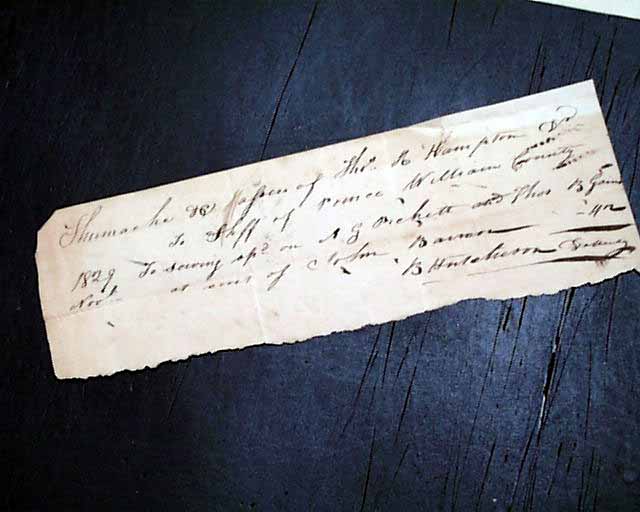 Shumache & Assee of Thos R Hampton Dr
To Shff of Prince William County
1829 To serving spa on A G Pickett and Thos B Gain
Novr at suit of John Barron -42
B Hutchison